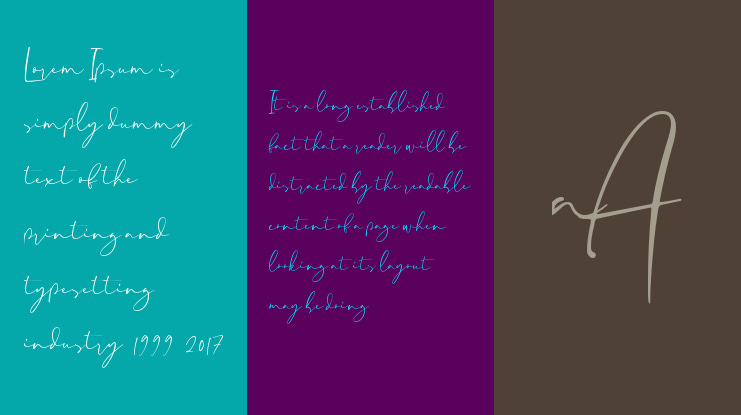 Lorem Ipsum is
simply dummy
text of the
printing and
typesetting
industry 1999 2017
It is a long established
fact that a reader will be
distracted by the readable
content of a page when
looking at its layout
may be doing
A